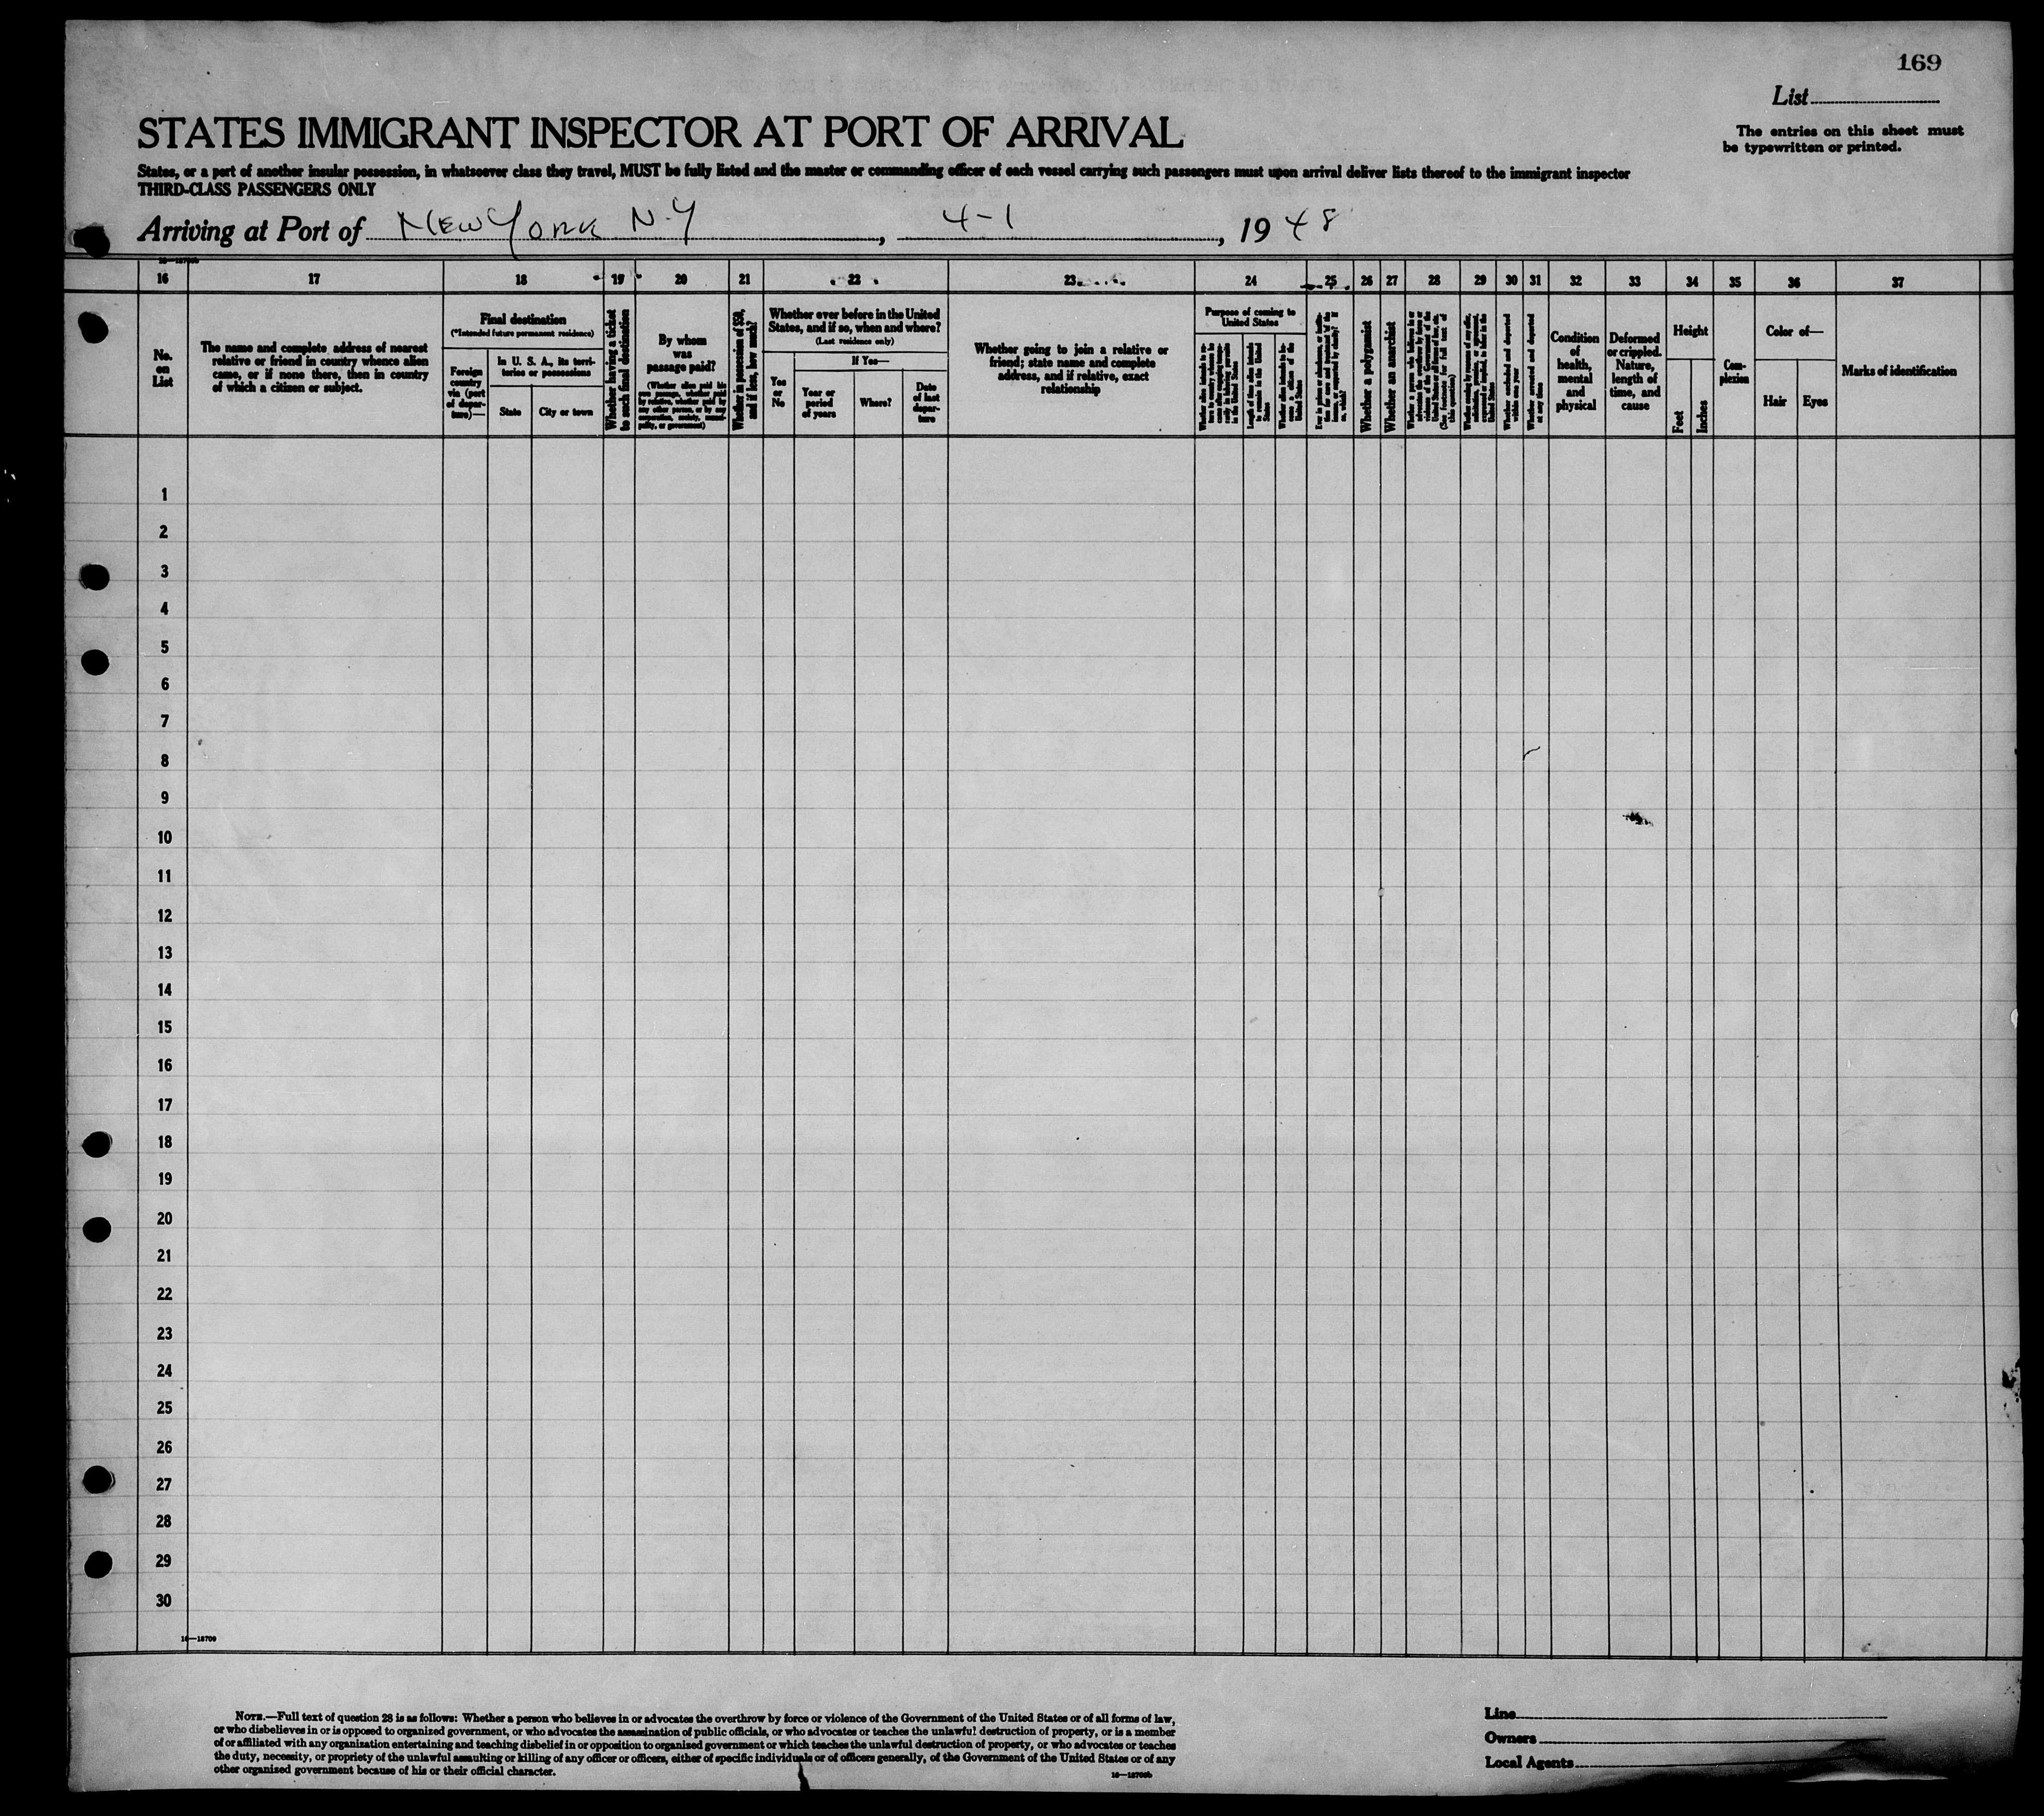 169
List
STATES IMMIGRANT INSPECTOR AT PORT OF ARRIVAL
The entries on this sheet must
be typewritten or printed.
States, or a port of another insular possession, in whatsoever class they travel, MUST be fully listed and the master or commanding officer of each vessel carrying such passengers must upon arrival deliver lists thereof to the immigrant inspector
THIRD-CLASS PASSENGERS ONLY
Arriving at Port of New York N-Y, 4-1, 1948
16 17 18 19 20 21 22 23 24 25 26 27 28 29 30 31 32 33 34 35 36 37
No.
on
List
The name and complete address of nearest
relative or friend in country whence alien
came, or if none there, then in country
of which a citizen or subject.
Final destination
(*Intended future permanent residence)
Foreign
country
via (port
of depar-
ture)—
In U. S. A., its terri-
tories or possessions
State
City or town
Whether having a ticket
to such final destination
By whom
was
passage paid?
(Whether alien paid his
own passage, whether paid
by relative, whether paid by
any other person, or by any
corporation, society, munici-
pality, or government)
Whether in possession of $50,
and if less, how much?
Whether ever before in the United
States, and if so, when and where?
(Last residence only)
Yes
or
No
If Yes—
Year or
period
of years
Where?
Date
of last
depar-
ture
Whether going to join a relative or
friend; state name and complete
address, and if relative, exact
relationship
Purpose of coming to
United States
Length of time alien intends
to remain in the United
States
Whether alien intends to be-
come a citizen of the
United States
Whether a polygamist
Whether an anarchist
Whether excluded and deported
within one year
Whether arrested and deported
at any time
Condition
of
health,
mental
and
physical
Deformed
or crippled.
Nature,
length of
time, and
cause
Height
Feet
Inches
Com-
plexion
Color of—
Hair
Eyes
Marks of identification
1
2
3
4
5
6
7
8
9
10
11
12
13
14
15
16
17
18
19
20
21
22
23
24
25
26
27
28
29
30
16—18709
NOTE.—Full text of question 28 is as follows: Whether a person who believes in or advocates the overthrow by force or violence of the Government of the United States or of all forms of law,
or who disbelieves in or is opposed to organized government, or who advocates the assassination of public officials, or who advocates or teaches the unlawful destruction of property, or is a member
of or affiliated with any organization entertaining and teaching disbelief in or opposition to organized government or which teaches the unlawful destruction of property, or who advocates or teaches
the duty, necessity, or propriety of the unlawful assaulting or killing of any officer or officers, either of specific individuals or of officers generally, of the Government of the United States or of any
other organized government because of his or their official character.
16—18709b
Line
Owners
Local Agents